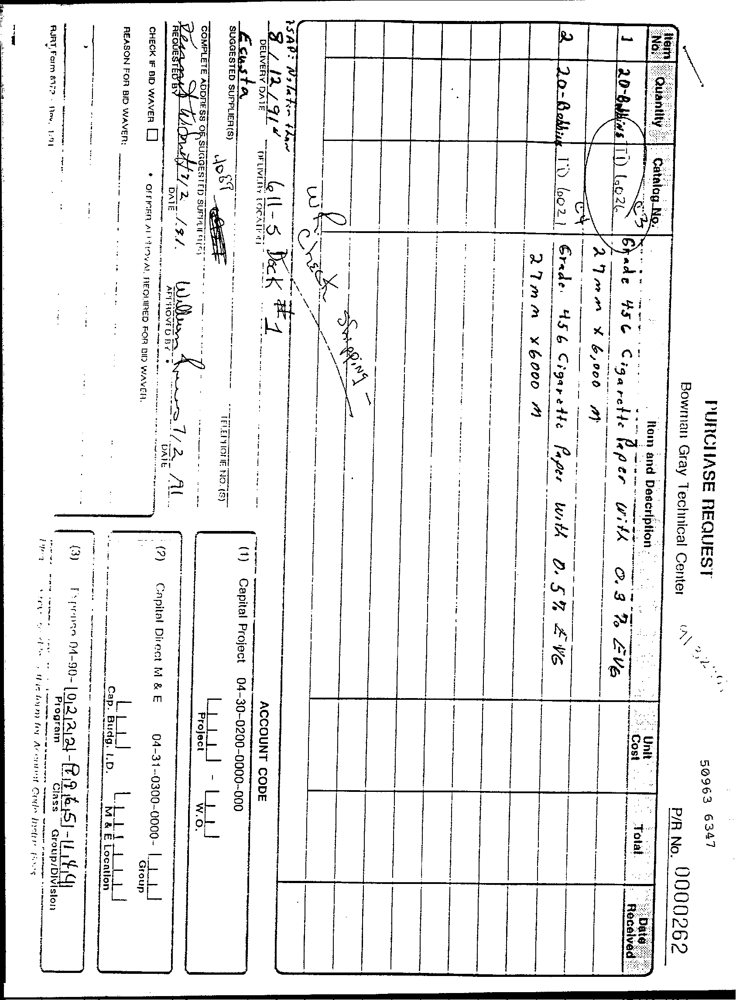 PURCHASE REQUEST
Bowman Gray Technical Center
50963 6347
P/R No. 0000262
Item No. Quantily Catalog No. Item and Description Unit Cost Total Date Received
1 20-Bobbins TD 6026 Grade 456 Cigarette Paper with 0.3 % EVG
27mm x 6,000 m
2 20-Bobbins TD 6021 Grade 456 Cigarette Paper with 0.5% EVG
27mm x 6000 m
Check Shipping -
ASAP: No later than
8/12/91
611-5 Dock #1
DELIVERY DATE DELIVERY LOCATION
Ecusta
SUGGESTED SUPPLIER(S) TELEPHONE NO.(S)
4089
COMPLETE ADDRESS OF SUGGESTED SUPPLIER(S)
7/2/91
7/2/91
REQUESTED BY DATE APPROVED BY * DATE
CHECK IF BID WAVER * OFFICER APPROVAL REQUIRED FOR BID WAVER.
REASON FOR BID WAVER:
RJRT Form 8372 - Rev. 1/91
ACCOUNT CODE
(1) Capital Project 04-30-0200-0000-000
Project - W.O.
(2) Capital Direct M & E 04-31-0300-0000-
Group
Cap. Budg. I.D. M & E Location
(3) Expense 04-90-
Program Class Group/Division